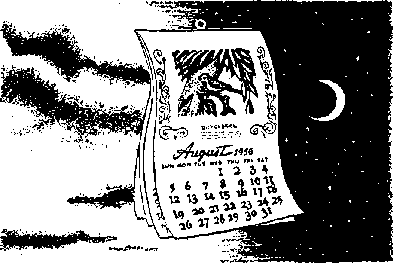 August 1956
SUN MON TUE WED THU FRI SAT
1 2 3 4
5 6 7 8 9 10 11
12 13 14 15 16 17 18
19 20 21 22 23 24 25
26 27 28 29 30 31